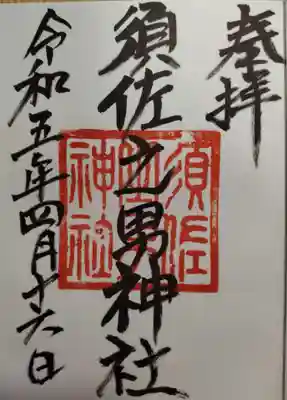 奉拝
須佐之男神社
令和五年四月十六日
須佐
之男
神社